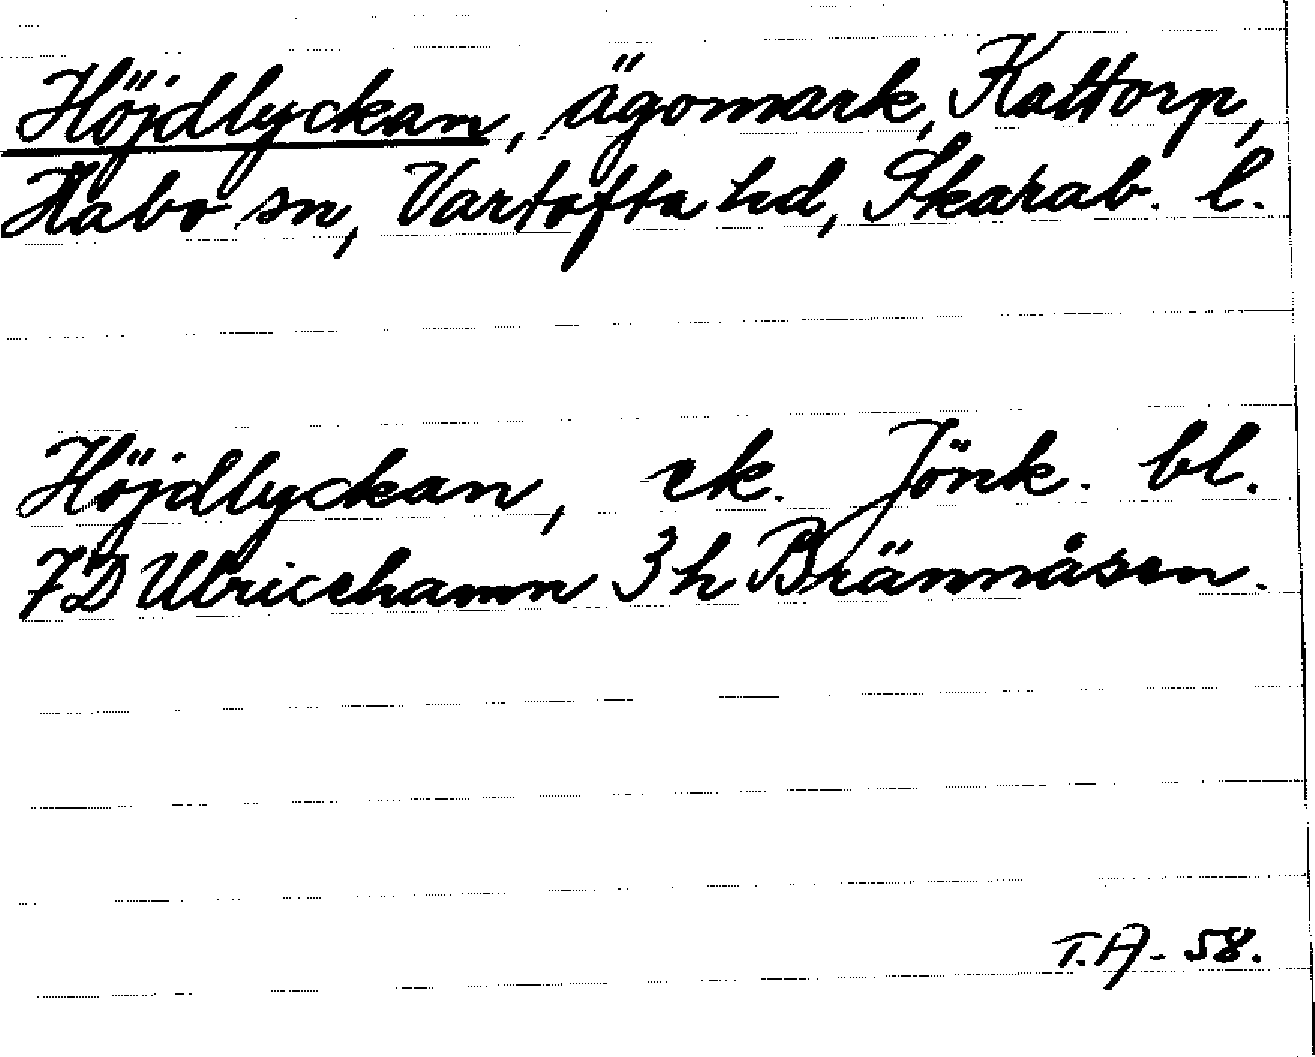 Höjdlyckan, ägomark, Kattorp,
Habo sn, Vartofta hd, Skarab. l.
Höjdlyckan, ek. Jönk. bl.
7D Ulricehamn 3h Brännåsen.
T.A. 58.